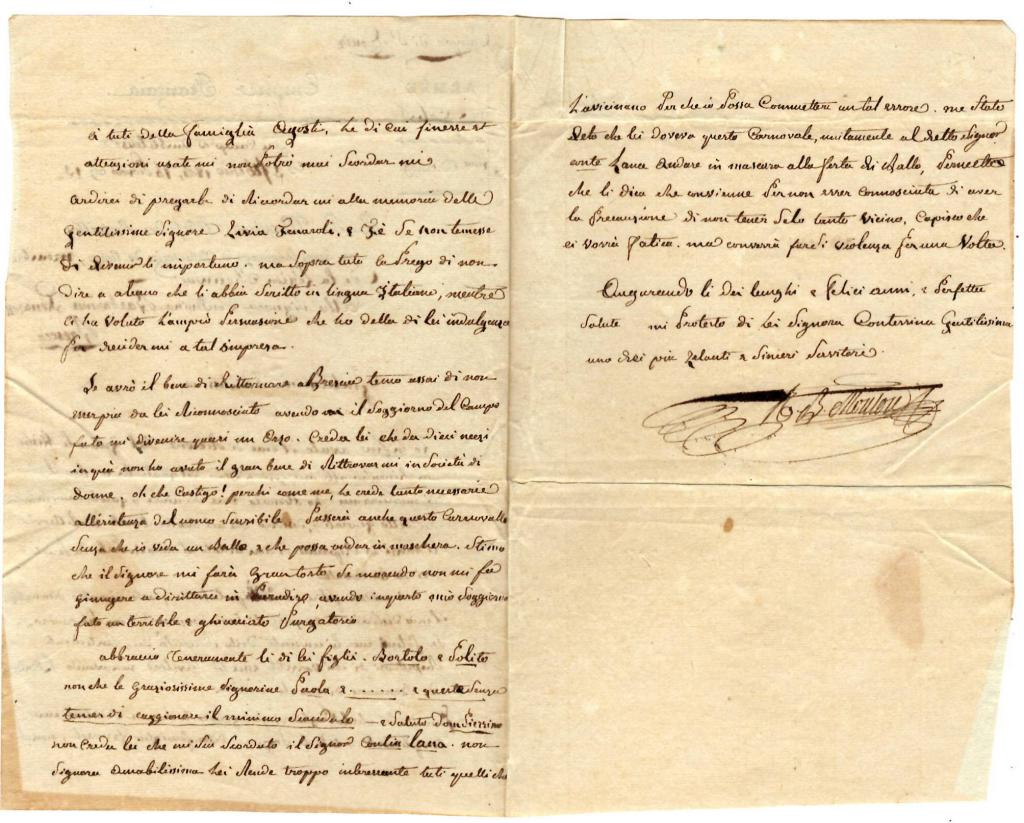 à tuti della Famiglia Agosti, he di cui finesse et
attenzioni usatemi non potrò mai scordarmi
ardirei di pregarla di Riccordarmi alla memoria delle
Gentilissime Signore Livia Fenaroli, e Fè se non temesse
di Rivenirli importuno. ma sopra tuto la Prego di non
dire a alcuno che li abbia scritto in lingua Italiana, mentre
ci ha voluto l'ampia Persuasione che ho della di lei indulgenza
per decidermi a tal impresa.
Se avrò il bene di Rittornare a Brescia temo assai di non
esser più da lei Riconnosciuto avendo il Soggiorno del Campo
fatomi divenire quasi un Orso. Creda lei che da dieci mesi
in quà non ho avuto il gran bene di Rittrovarmi in Società di
donne, oh che Castigo! perchi come me, he crede tanto necessarie
all'esistenza del uomo Sensibile. Passerà anche questo Carnovalle
senza che io veda un Ballo, e che possa andar in maschera. Stimo
che il Signore mi farà Gran torto se morendo non mi fà
giungere a dirittura in Paradizo, avendo in questo mio Soggiorno
fato un terribile e ghiacciato Purgatorio
abbraccio Teneramente li di lei figli. Bortolo e Polito
non che le graziosissime Signorine Paola e ....... e questa senza
temer di caggionare il minimo Scandalo — e Saluto Dom Pierrino
non Creda lei che mi sia Scordato il Signor Contin Lana. non
Signora Amabilissima lei Rende troppo interessante tuti quelli che
L'avicinano Perche io Possa Commettere un tal errore. me Stato
deto che lei doveva questo Carnovale, unitamente al detto Signor
conte Lana andare in mascara alla festa di Ballo, Permetta
che li dica che convienne Per non esser Connosciuta di aver
la Precauzione di non tener Selo tanto vicino, Capisco che
ci vorrà fatica. ma converrà farsi violenza Per una Volta.
Augurando li dei lunghi e felici anni, e Perfetta
Salute mi Protesto di Lei Signora Contessina Gentilissima
uno dei più zelanti e Sinceri Servitori.